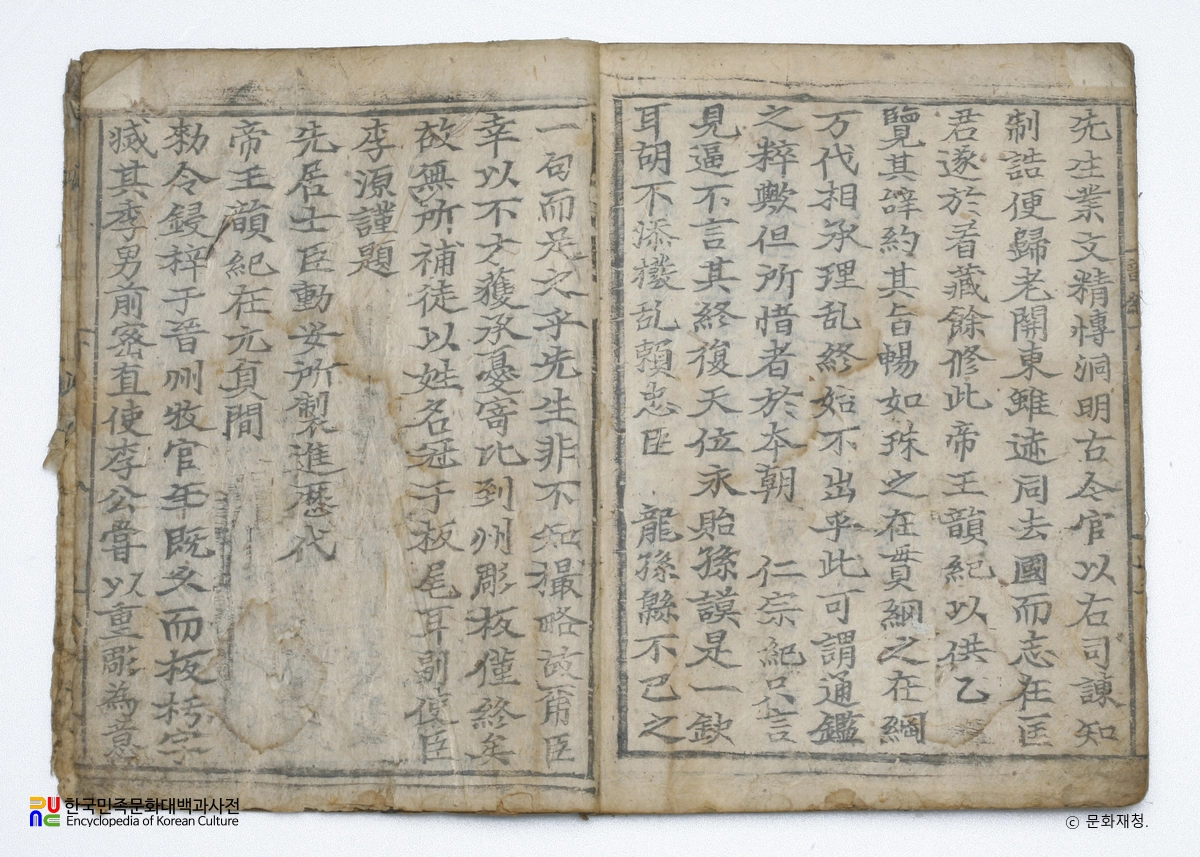 先生業文精博洞明古今官以右司諫知
制誥便歸老關東雖迹同去國而志在匡
君遂於看藏餘修此帝王韻紀以供乙
覽其辝約其旨暢如珠之在貫綱之在綱
万代相承理乱終始不出乎此可謂通鑑
之粹歟但所惜者於本朝 仁宗紀只言
見逼不言其終復天位永貽孫謨是一欽
耳胡不添撥乱賴忠臣 龍孫緜不已之
一句而足之乎先生非不知撮略故甫臣
幸以不才獲承憂寄比到州彫板僅終矣
故無所補徒以姓名冠于板尾耳副使臣
李源謹題
先居士臣動安所製進歷代
帝王韻紀在元貞間
勑令鋟梓于晉州牧官年既久而板朽字
滅其季男前密直使李公嘗以重彫為意
한국민족문화대백과사전
Encyclopedia of Korean Culture
ⓒ 문화재청.